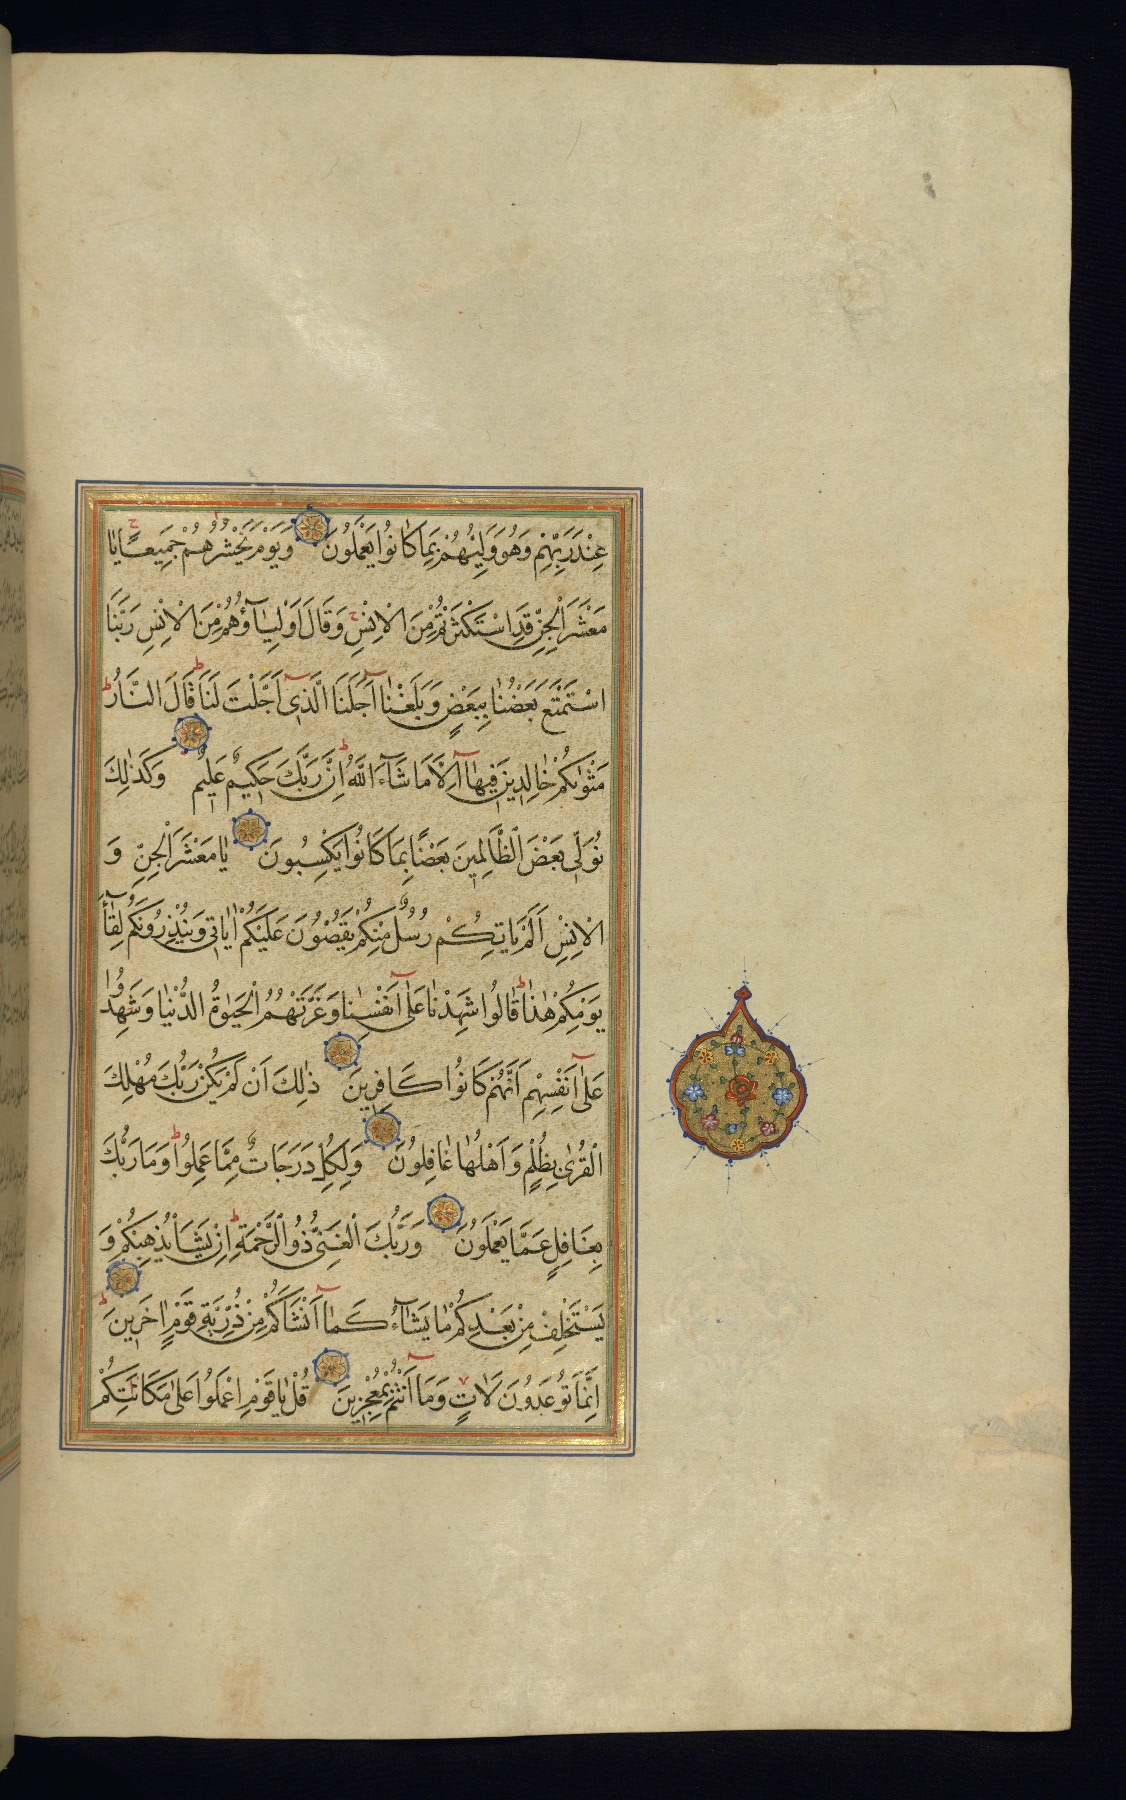 عِنْدَ رَبِّهِمْ وَهُوَ وَلِيُّهُمْ بِمَا كَانُوا يَعْمَلُونَ وَيَوْمَ يَحْشُرُهُمْ جَمِيعًا يَا
مَعْشَرَ الْجِنِّ قَدِ اسْتَكْثَرْتُمْ مِنَ الْاِنْسِ وَقَالَ اَوْلِيَاؤُهُمْ مِنَ الْاِنْسِ رَبَّنَا
اسْتَمْتَعَ بَعْضُنَا بِبَعْضٍ وَبَلَغْنَا اَجَلَنَا الَّذِى اَجَّلْتَ لَنَا قَالَ النَّارُ
مَثْوٰىكُمْ خَالِدِينَ فِيهَا اِلَّا مَا شَاءَ اللّٰهُ اِنَّ رَبَّكَ حَكِيمٌ عَلِيمٌ وَكَذٰلِكَ
نُوَلِّى بَعْضَ الظَّالِمِينَ بَعْضًا بِمَا كَانُوا يَكْسِبُونَ يَا مَعْشَرَ الْجِنِّ وَ
الْاِنْسِ اَلَمْ يَاْتِكُمْ رُسُلٌ مِنْكُمْ يَقُصُّونَ عَلَيْكُمْ اٰيَاتِى وَيُنْذِرُونَكُمْ لِقَاءَ
يَوْمِكُمْ هٰذَا قَالُوا شَهِدْنَا عَلٰى اَنْفُسِنَا وَغَرَّتْهُمُ الْحَيٰوةُ الدُّنْيَا وَشَهِدُوا
عَلٰى اَنْفُسِهِمْ اَنَّهُمْ كَانُوا كَافِرِينَ ذٰلِكَ اَنْ لَمْ يَكُنْ رَبُّكَ مُهْلِكَ
الْقُرٰى بِظُلْمٍ وَاَهْلُهَا غَافِلُونَ وَلِكُلٍّ دَرَجَاتٌ مِمَّا عَمِلُوا وَمَا رَبُّكَ
بِغَافِلٍ عَمَّا يَعْمَلُونَ وَرَبُّكَ الْغَنِىُّ ذُو الرَّحْمَةِ اِنْ يَشَاْ يُذْهِبْكُمْ وَ
يَسْتَخْلِفْ مِنْ بَعْدِكُمْ مَا يَشَاءُ كَمَا اَنْشَاَكُمْ مِنْ ذُرِّيَّةِ قَوْمٍ اٰخَرِينَ
اِنَّمَا تُوعَدُونَ لَاٰتٍ وَمَا اَنْتُمْ بِمُعْجِزِينَ قُلْ يَا قَوْمِ اعْمَلُوا عَلٰى مَكَانَتِكُمْ